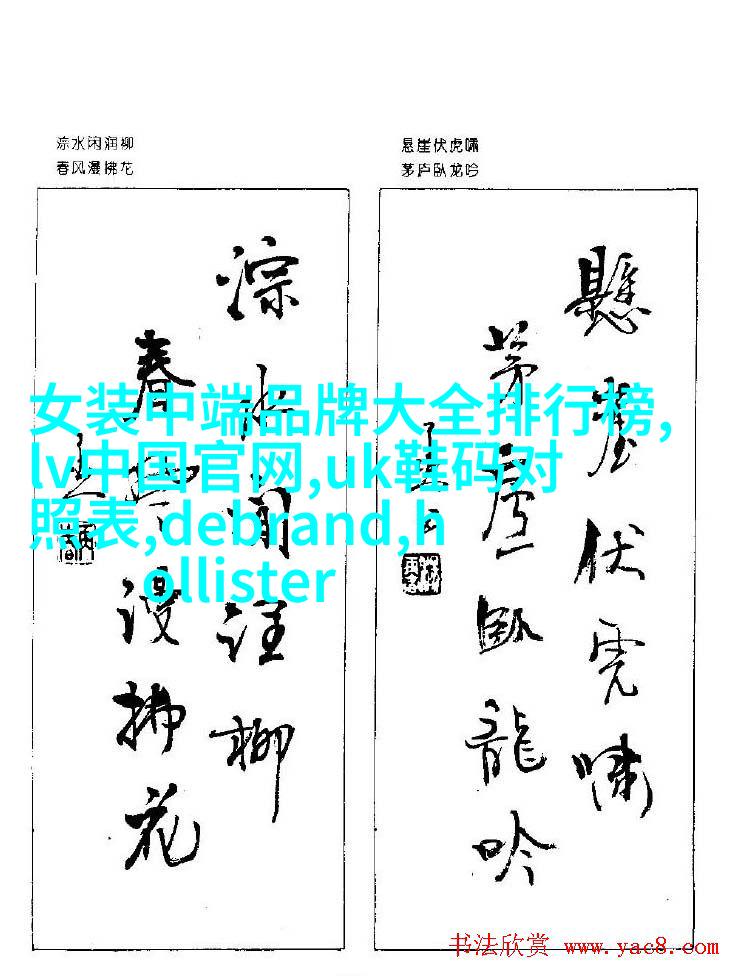 淙水闲润柳
春风漫拂花
悬崖伏虎啸
茅庐卧龙吟
淙水闲润柳
春风漫拂花
懸崖伏虎啸
茅廬臥龍吟
女装中端品牌大全排行榜,
lv中国官网,uk鞋码对
照表,debrand,h
ollister
书法欣赏 www.yac8.com